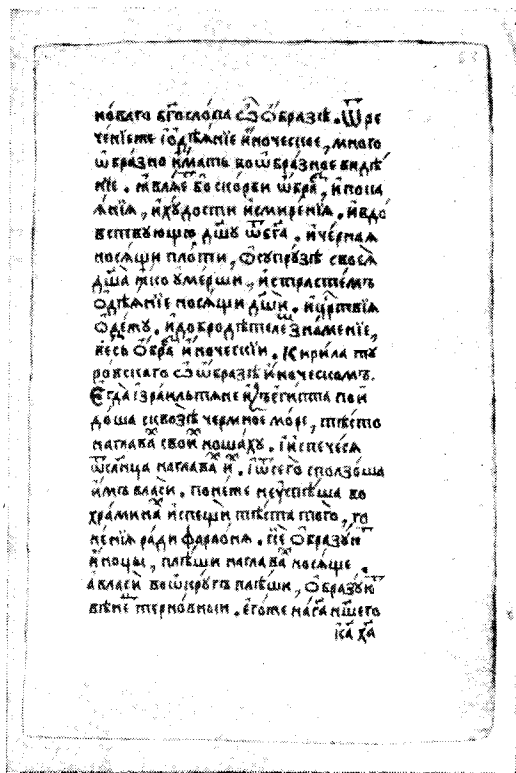 но́ваго бг҃осло́ва ѡ҆ О҆́бразѣ. Ѿре
че́нїеже і҆ѻдѣѧ́нїе и҆́ноческое, много
ѡ҆бра́зно и҆́мать воѡбра́зное видѣ́
нїе. ꙗ҆влѧ́е бо ско́рби ѡ҆́бра, и҆пока
ѧ́нїѧ, и҆ху́дости и҆смире́нїѧ. и҆вдо́
вствующю дш҃у ѿбг҃а. и҆че́рнаѧ
носѧ́щи пло́ти, О҆супру́зѣ своеѧ̀
дш҃а ꙗ҆́ко у҆ме́рши, и҆стра́стемъ
О҆дѣѧ́нїе носѧ́щи дш҃и. и҆цр҃твїѧ
О҆де́жу. и҆добродѣ́телє зна́менїе,
ве́сь О҆́бра и҆́ноческїи. Кири́ла ту́
ровскаго ѡ҆ ѡ҆́бразѣ и҆́ноческомъ.
Є҆гда̀ і҆зра́ильтѧне и҆зъе҆гі́пта пои
до́ша сквозѣ̀ чермно́е мо́ре, тѣ́сто
наглава свои ноша́ху. і҆и҆спече́сѧ
ѿсл҃нца наглава и. і҆ѿсего̀ сползо́ша
и҆́мъ вла́си. поне́же неу҆спѣ́ша во
хра́мина и҆спещѝ тѣ́ста того̀, го
не́нїѧ ра́ди фараѡ́нѧ. сїе О҆бразую
и҆́ноцы, плѣ́ши наглава носѧ́ще.
а҆вла́си во́ѡкругъ плѣ́ши, О҆бразую
вѣне терно́вныи. є҆го́же нага нш҃его
і҆са ха